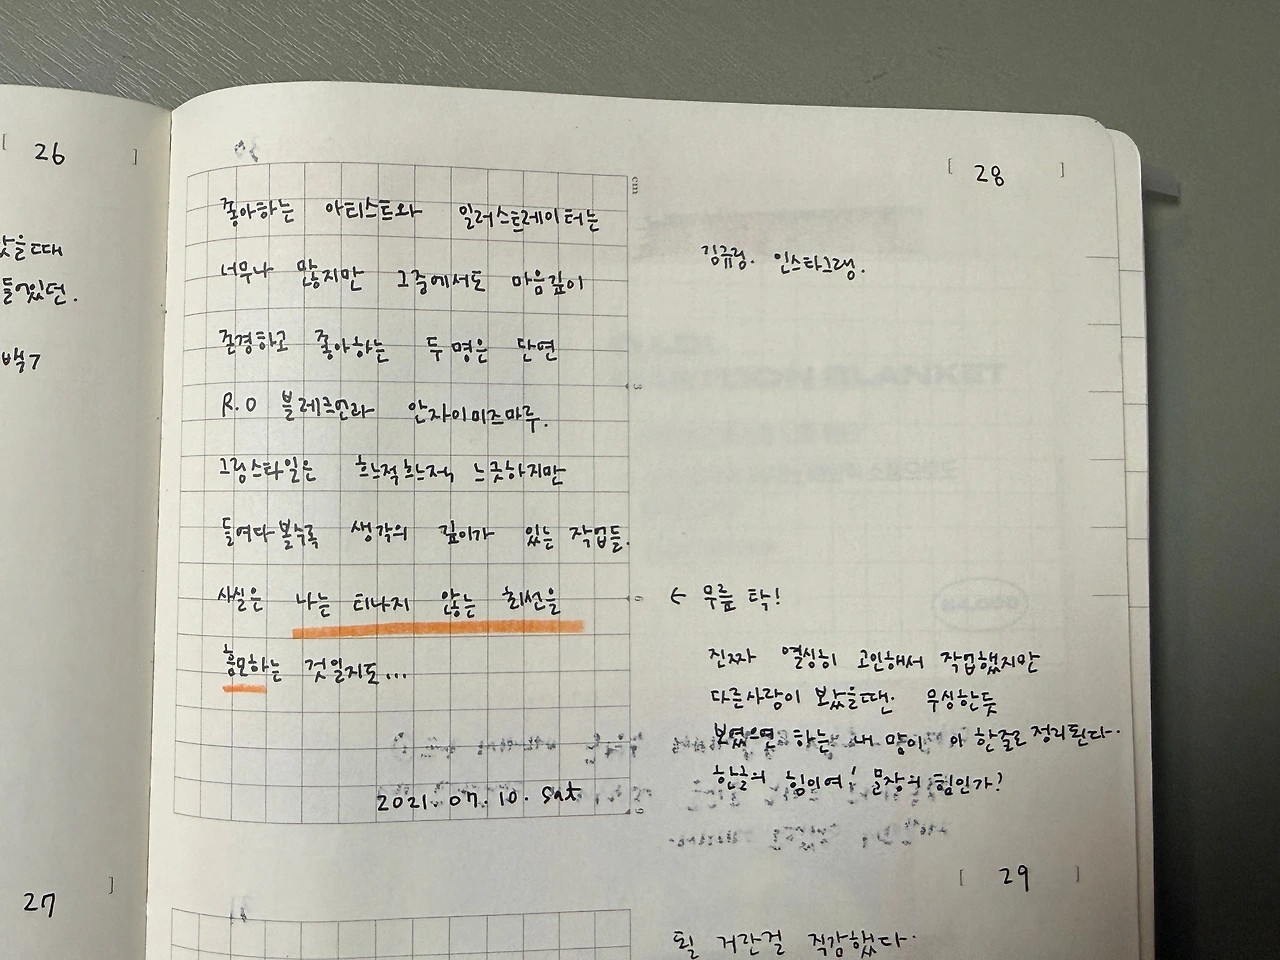 [ 26 ]
았을때
들어있던.
[ 27 ]
cm
좋아하는 아티스트와 일러스트레이터는
너무나 많지만 그중에서도 마음깊이
존경하고 좋아하는 두 명은 단연
3
R.O 블레크먼과 안자이미즈마루.
그림스타일은 흐느적흐느적, 느긋하지만
들여다볼수록 생각의 깊이가 있는 작업들.
사실은 나는 티나지 않는 최선을
6
흠모하는 것일지도...
2021. 07. 10. sat
9
[ 28 ]
김규림. 인스타그램.
← 무릎 탁!
진짜 열심히 고민해서 작업했지만
다른사람이 봤을땐. 무심한듯
보였으면 하는 내 맘이 이 한줄로 정리된다.
한글의 힘이여! 문장의 힘인가!
[ 29 ]
될 거란걸 직감했다.